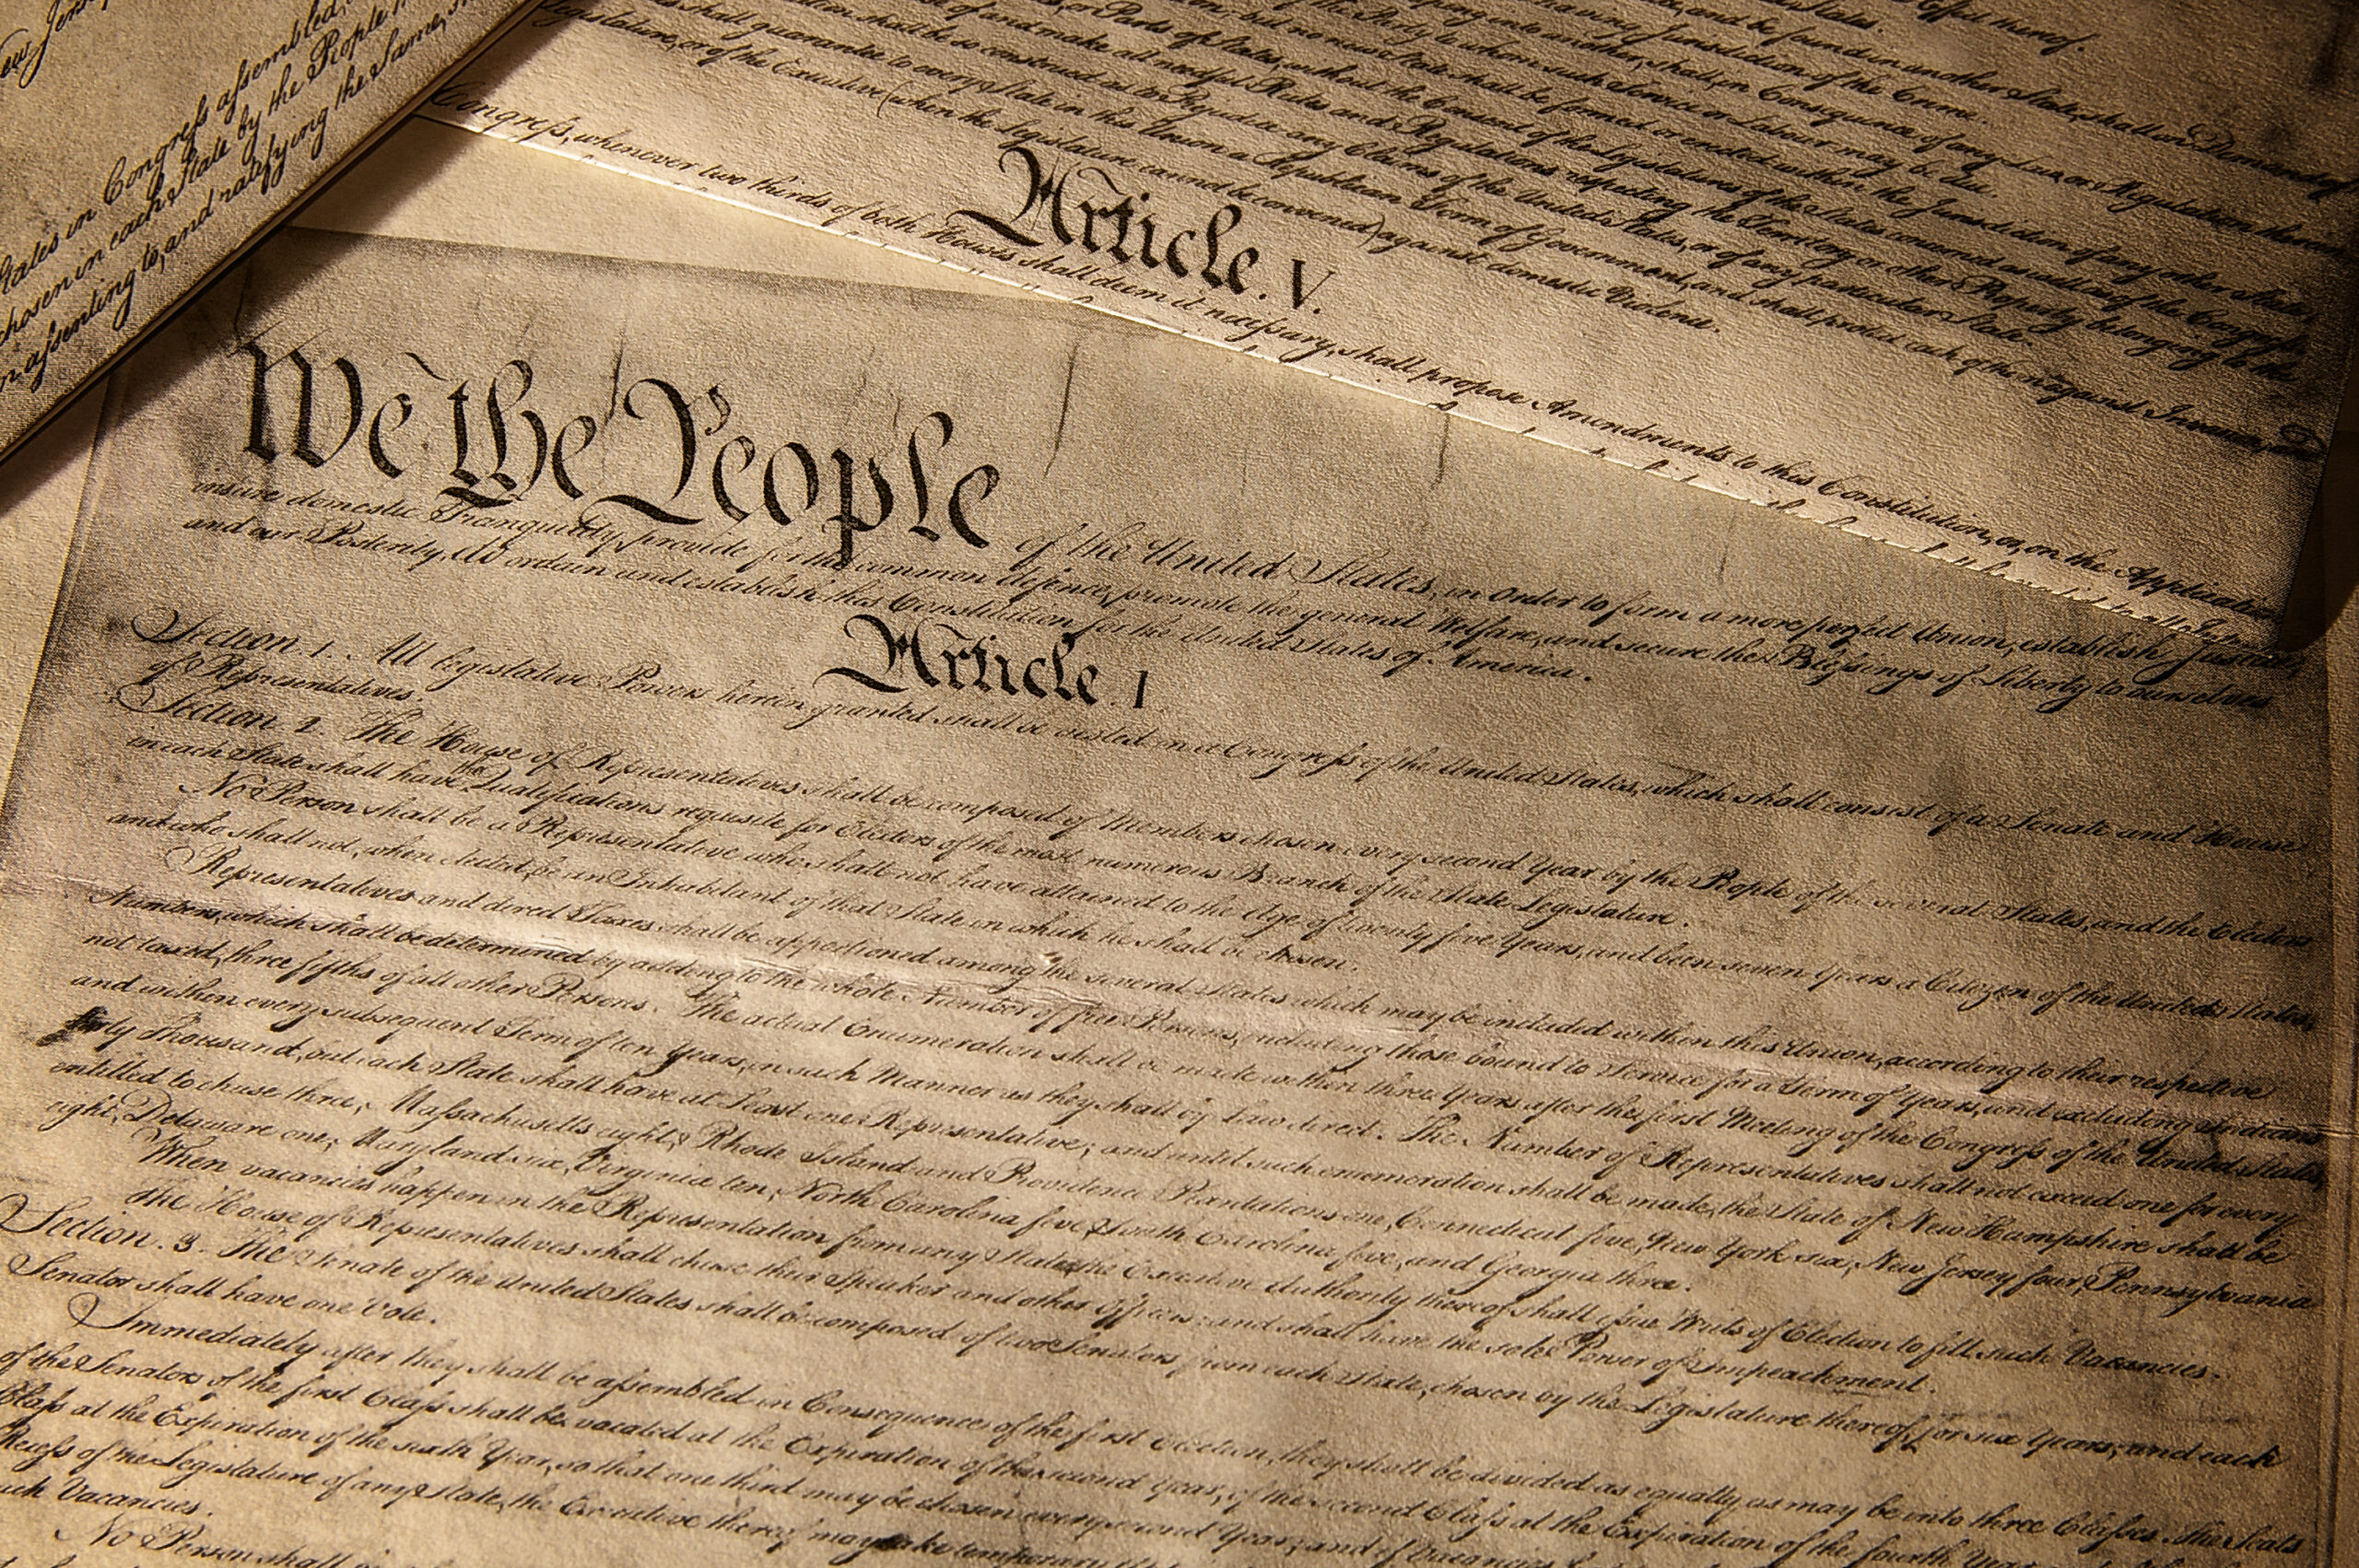 New Jersey
States in Congress assembled,
chosen in each State by the People
assenting to, and ratifying the Same,
on the Crime.
shall be formed or erected within the Jurisdiction of any other State;
of the Legislatures of the States concerned as well as of the Congress.
and make all needful Rules and Regulations respecting the Territory or other Property belonging to the
shall be so construed as to Prejudice any Claims of the United States, or of any particular State.
shall guarantee to every State in this Union a Republican Form of Government, and shall protect each of them against Invasion;
Legislature, or of the Executive (when the Legislature cannot be convened) against domestic Violence.
Article. V.
Congress, whenever two thirds of both Houses shall deem it necessary, shall propose Amendments to this Constitution, or, on the Application
We the People of the United States, in Order to form a more perfect Union, establish Justice,
insure domestic Tranquility, provide for the common defence, promote the general Welfare, and secure the Blessings of Liberty to ourselves
and our Posterity, do ordain and establish this Constitution for the United States of America.
Article. I.
Section. 1. All legislative Powers herein granted shall be vested in a Congress of the United States, which shall consist of a Senate and House
of Representatives.
Section. 2. The House of Representatives shall be composed of Members chosen every second Year by the People of the several States, and the Electors
in each State shall have the Qualifications requisite for Electors of the most numerous Branch of the State Legislature.
No Person shall be a Representative who shall not have attained to the Age of twenty five Years, and been seven Years a Citizen of the United States,
and who shall not, when elected, be an Inhabitant of that State in which he shall be chosen.
Representatives and direct Taxes shall be apportioned among the several States which may be included within this Union, according to their respective
Numbers, which shall be determined by adding to the whole Number of free Persons, including those bound to Service for a Term of Years, and excluding Indians
not taxed, three fifths of all other Persons. The actual Enumeration shall be made within three Years after the first Meeting of the Congress of the United States,
and within every subsequent Term of ten Years, in such Manner as they shall by Law direct. The Number of Representatives shall not exceed one for every
thirty Thousand, but each State shall have at Least one Representative; and until such enumeration shall be made, the State of New Hampshire shall be
entitled to chuse three, Massachusetts eight, Rhode Island and Providence Plantations one, Connecticut five, New York six, New Jersey four, Pennsylvania
eight, Delaware one, Maryland six, Virginia ten, North Carolina five, South Carolina five, and Georgia three.
When vacancies happen in the Representation from any State, the Executive Authority thereof shall issue Writs of Election to fill such Vacancies.
The House of Representatives shall chuse their Speaker and other Officers; and shall have the sole Power of Impeachment.
Section. 3. The Senate of the United States shall be composed of two Senators from each State, chosen by the Legislature thereof, for six Years; and each
Senator shall have one Vote.
Immediately after they shall be assembled in Consequence of the first Election, they shall be divided as equally as may be into three Classes. The Seats
of the Senators of the first Class shall be vacated at the Expiration of the second Year, of the second Class at the Expiration of the fourth Year,
Class at the Expiration of the sixth Year, so that one third may be chosen every second Year; and if Vacancies
Recess of the Legislature of any State, the Executive thereof may make temporary
such Vacancies.
No Person shall